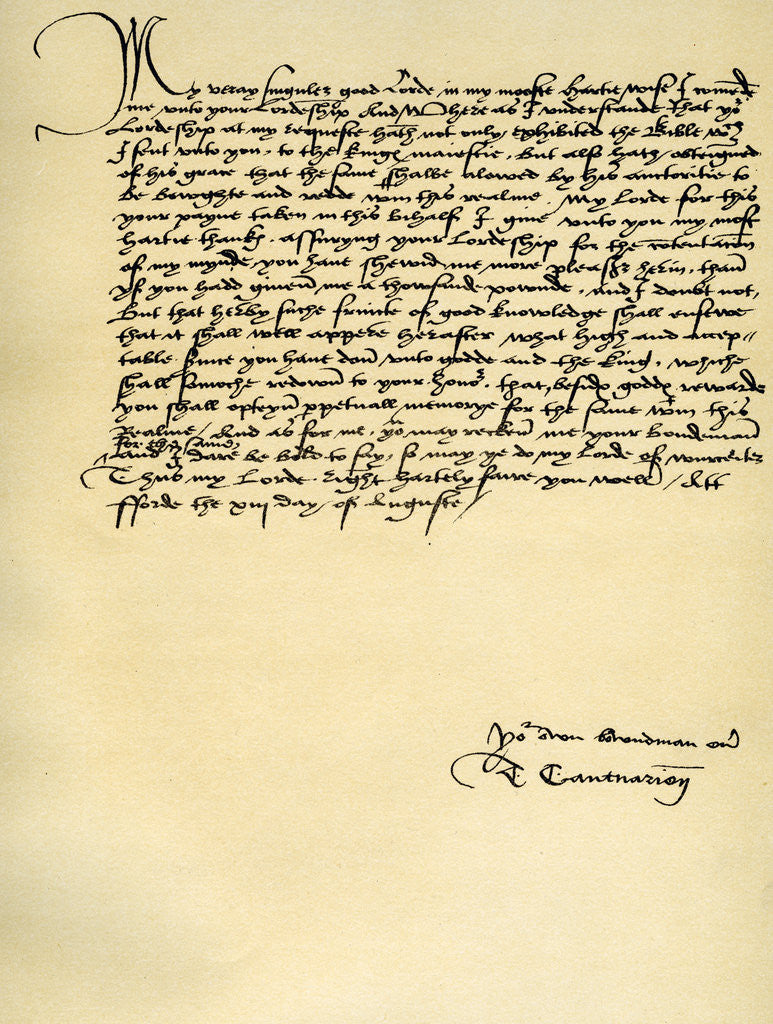 My veray singuler good Lorde in my mooste hartie wise I comende
me unto your Lordeship And Where as I understande that yor
Lordeship at my requeste hath not only exhibited the Bible wch
I sent unto you, to the kings maiestie, but also hath obteigned
of his grace that the same shalbe alowed by his auctoritie to
be bowghte and redde wtin this realme. My Lorde for this
your payne taken in this bihalf I give unto you my most
hartie thanks, assuryng your Lordeship for the contentacon
of my mynde, you have shewid me more pleasr herin, than
yf you hadd given me a thowsande pownde, and I doubt not,
But that herby suche fruicte of good knowledge shall ensewe
that it shall well appere herafter what high and accep=
table service you have don unto godde and the king, whiche
shall somoche redown to your honor, that, besids godds rewarde
you shall opteyn ppetuall memorye for the same wtin this
Realme / And as for me, yo may recken me your bondeman
for the same,
And I dare be bold to say, so may ye do my Lorde of wurceiter
Thus my Lorde right hartely fare you well / Att
fforde the xiij day of Auguste
Yor own bowndman ever
T Cantuarien